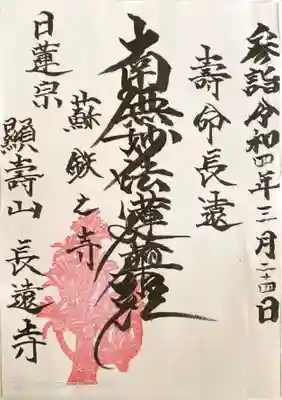 参詣令和四年三月二十四日
壽命長遠
南無妙法蓮華経
蘇鉄之寺
日蓮宗
顯壽山 長遠寺